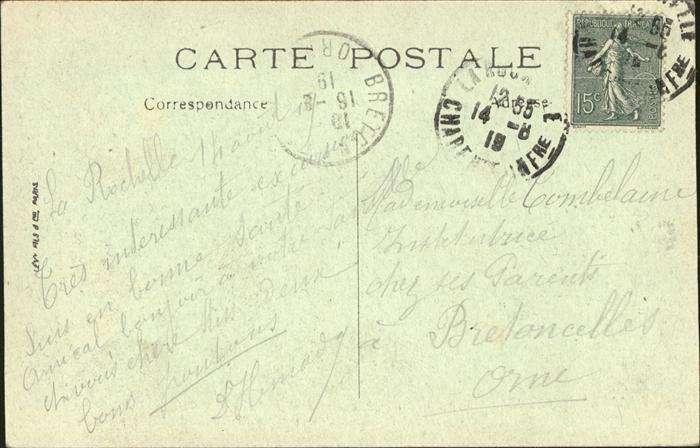 CARTE POSTALE
Correspondance
Adresse
RÉPUBLIQUE FRANÇAISE
15c
LA ROCHELLE
12 55
14 -8
19
CHARENTE INFRE
BRETONCELLES
16 -8
19
ORNE
LEVY FILS & Cie PARIS
La Rochelle 14 août 19
Très intéressante excursion
Suis en bonne santé
Amical bonjour à
et à vous chère Miss deux
bons
Mademoiselle Combelaine
Institutrice
chez ses Parents
à Bretoncelles
Orne